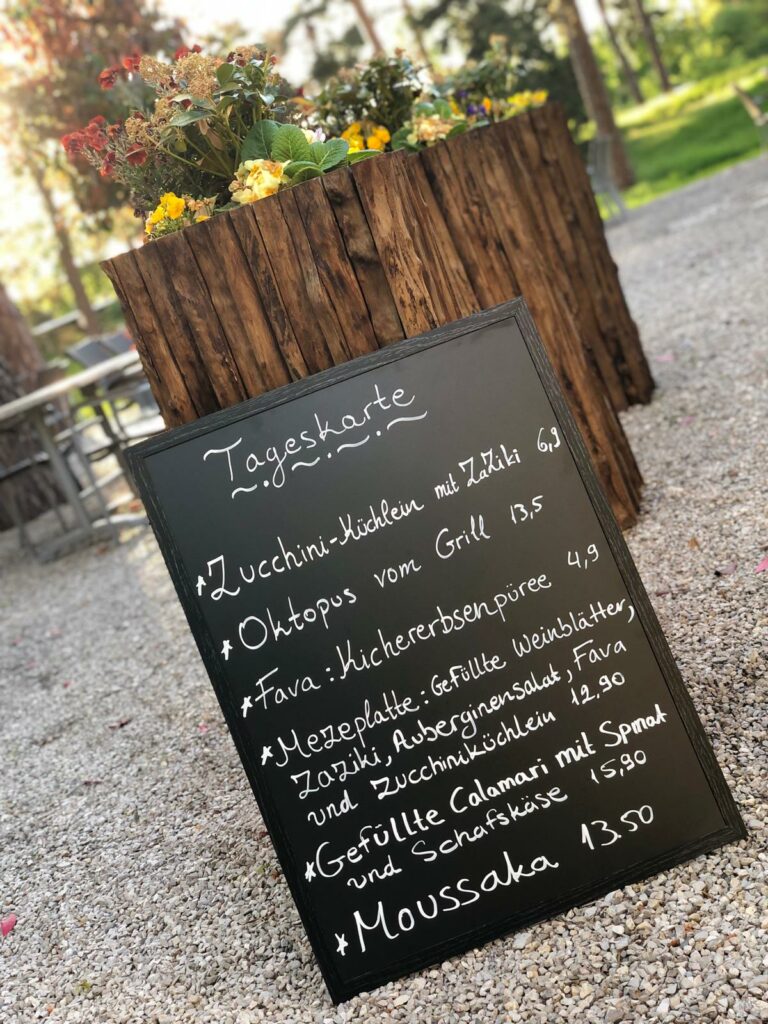 Tageskarte
* Zucchini-Küchlein mit ZaZiki 6,9
* Oktopus vom Grill 13,5
* Fava: Kichererbsenpüree 4,9
* Mezeplatte: Gefüllte Weinblätter,
Zaziki, Auberginensalat, Fava
und Zucchiniküchlein 12,90
* Gefüllte Calamari mit Spinat
und Schafskäse 15,90
* Moussaka 13.50